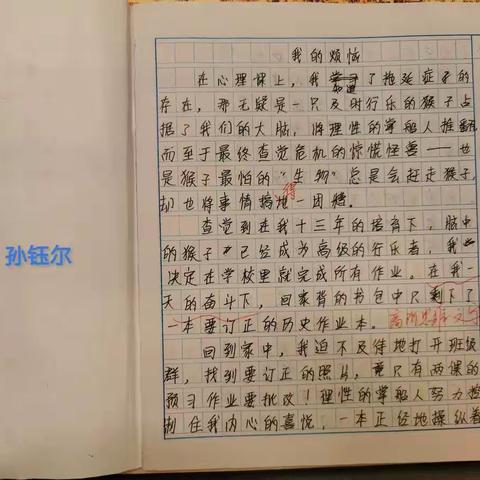 我的烦恼
在心理课上，我知道了拖延症的
存在，那无疑是一只及时行乐的猴子占
据了我们的大脑，将理性的掌舵人推翻
而至于最终查觉危机的惊慌怪兽——也
是猴子最怕的“生物”总是会赶走猴子，
却也将事情搞得一团糟。
查觉到在我十三年的培育下，脑中
的猴子已经成为高级的行乐者，我
决定在学校里就完成所有作业。在我一
天的奋斗下，回家背的书包中只剩下了
一本要订正的历史作业本。
回到家中，我迫不及待地打开班级
群，找到要订正的照片，竟只有两课的
预习作业要批改！理性的掌舵人努力控
制住我内心的喜悦，一本正经地操纵着
孙钰尔